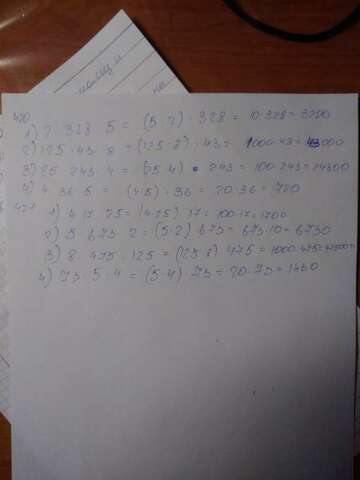 420
1) 2 · 328 · 5 = (5 · 2) · 328 = 10 · 328 = 3280
2) 125 · 43 · 8 = (125 · 8) · 43 = 1000 · 43 = 43000
3) 25 · 243 · 4 = (25 · 4) · 243 = 100 · 243 = 24300
4) 4 · 36 · 5 = (4 · 5) · 36 = 20 · 36 = 720
421
1) 4 · 17 · 25 = (4 · 25) · 17 = 100 · 17 = 1700
2) 5 · 673 · 2 = (5 · 2) · 673 = 673 · 10 = 6730
3) 8 · 475 · 125 = (125 · 8) · 475 = 1000 · 475 =
4) 73 · 5 · 4 = (5 · 4) · 73 = 20 · 73 = 1460